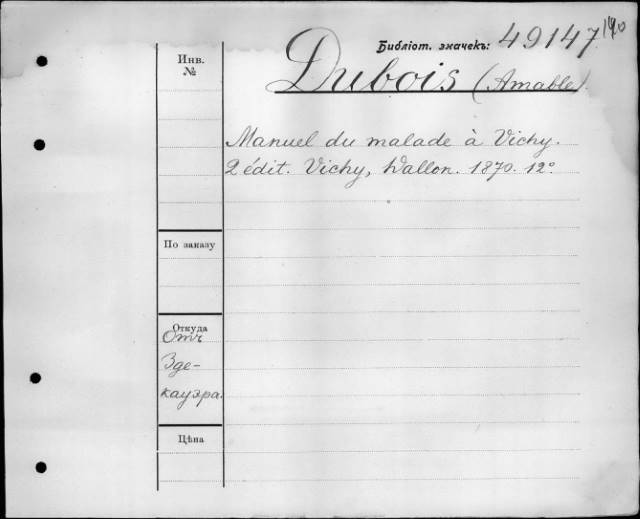 Библіот. значекъ: 49147 190
Инв.
№
Dubois (Amable)
Manuel du malade à Vichy.
2 édit. Vichy, Wallon. 1870. 12°
По заказу
Откуда
Отъ
Зде-
кауэра.
Цѣна